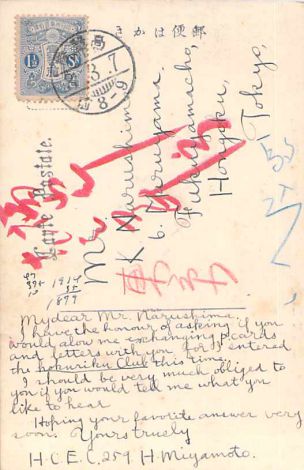 郵便はかき
Carte Postale.
1½ Sn
3.7
8-9
Mr.
K Narushima
6. Maruyama.
Fukuyamacho,
Hongoku,
Tokyo.
1914
1899
My dear Mr. Narushima,
I have the honour of asking if you
would alow me exchanging p. cards
and letters with you for I entered
the hokuriku Club this time.
I should be very much obliged to
you if you would tell me what you
like to hear
Hoping your favorite answer very
soon. Yours truely
H. C. E. C. 259. H. Miyamoto.